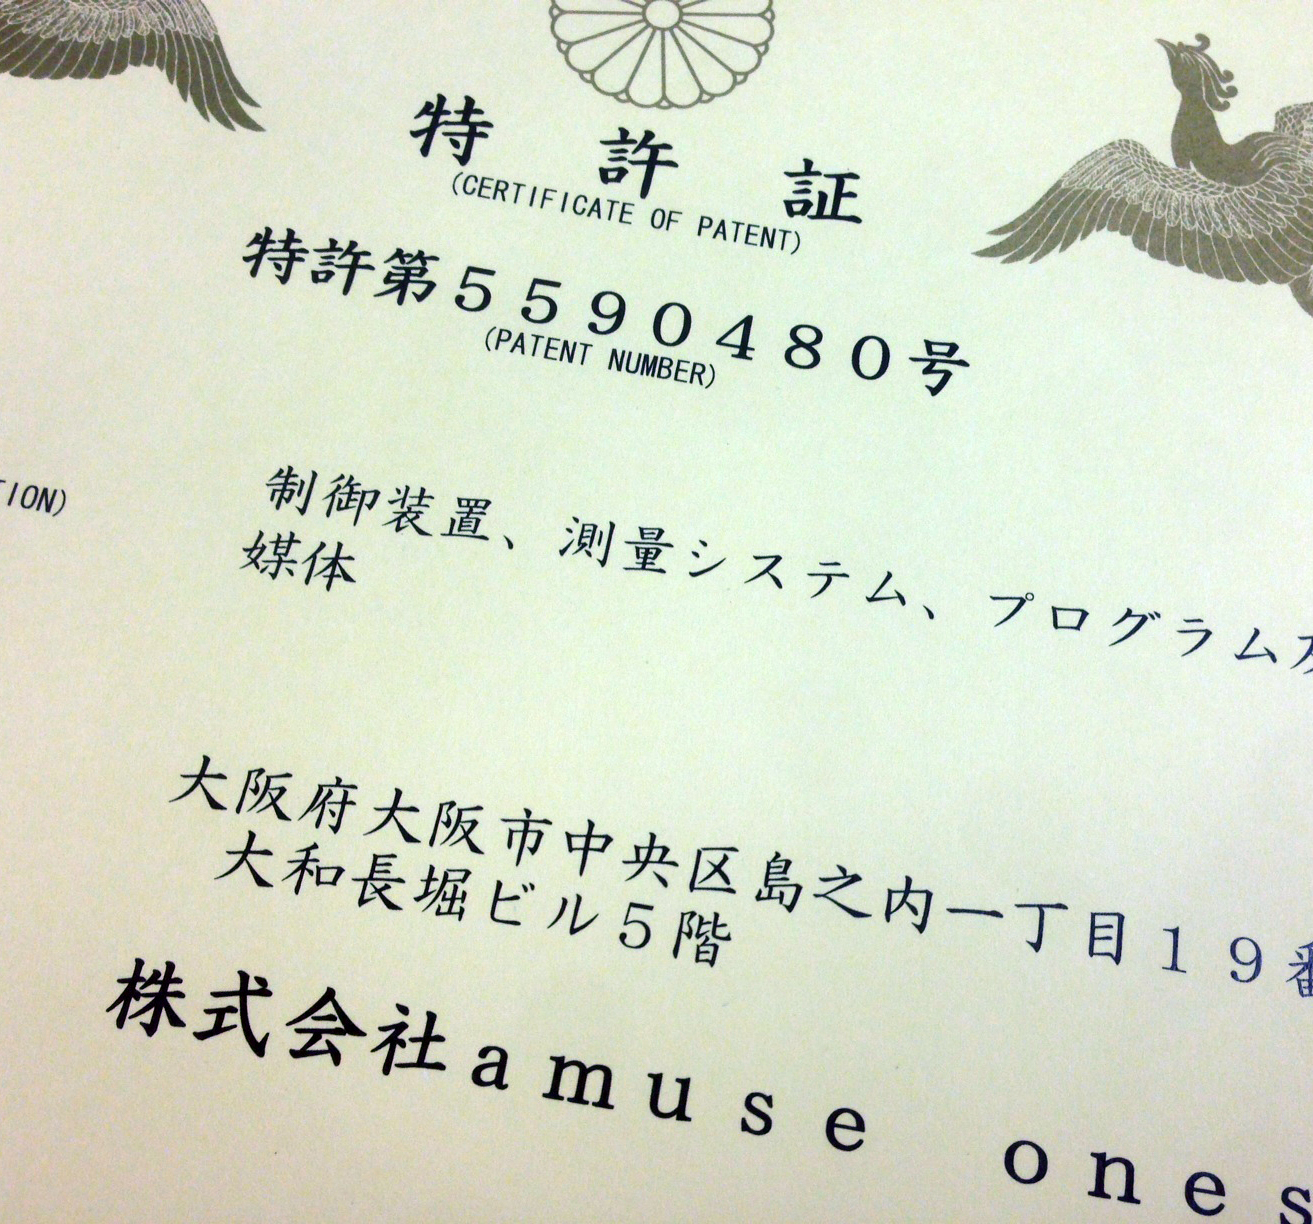 特許証
(CERTIFICATE OF PATENT)
特許第5590480号
(PATENT NUMBER)
TION)
制御装置、測量システム、プログラム
媒体
大阪府大阪市中央区島之内一丁目19番
大和長堀ビル5階
株式会社amuse ones